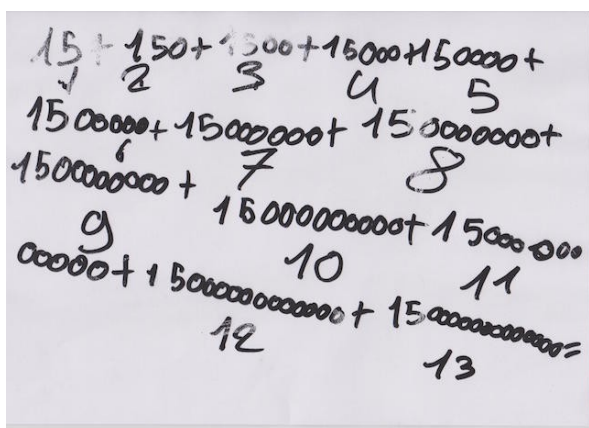 15 + 150 + 1500 + 15000 + 150000 +
1 2 3 4 5
1500000 + 15000000 + 150000000 +
6 7 8
1500000000 + 15000000000 + 15000000
9 10 11
00000 + 1500000000000 + 15000000000000 =
12 13